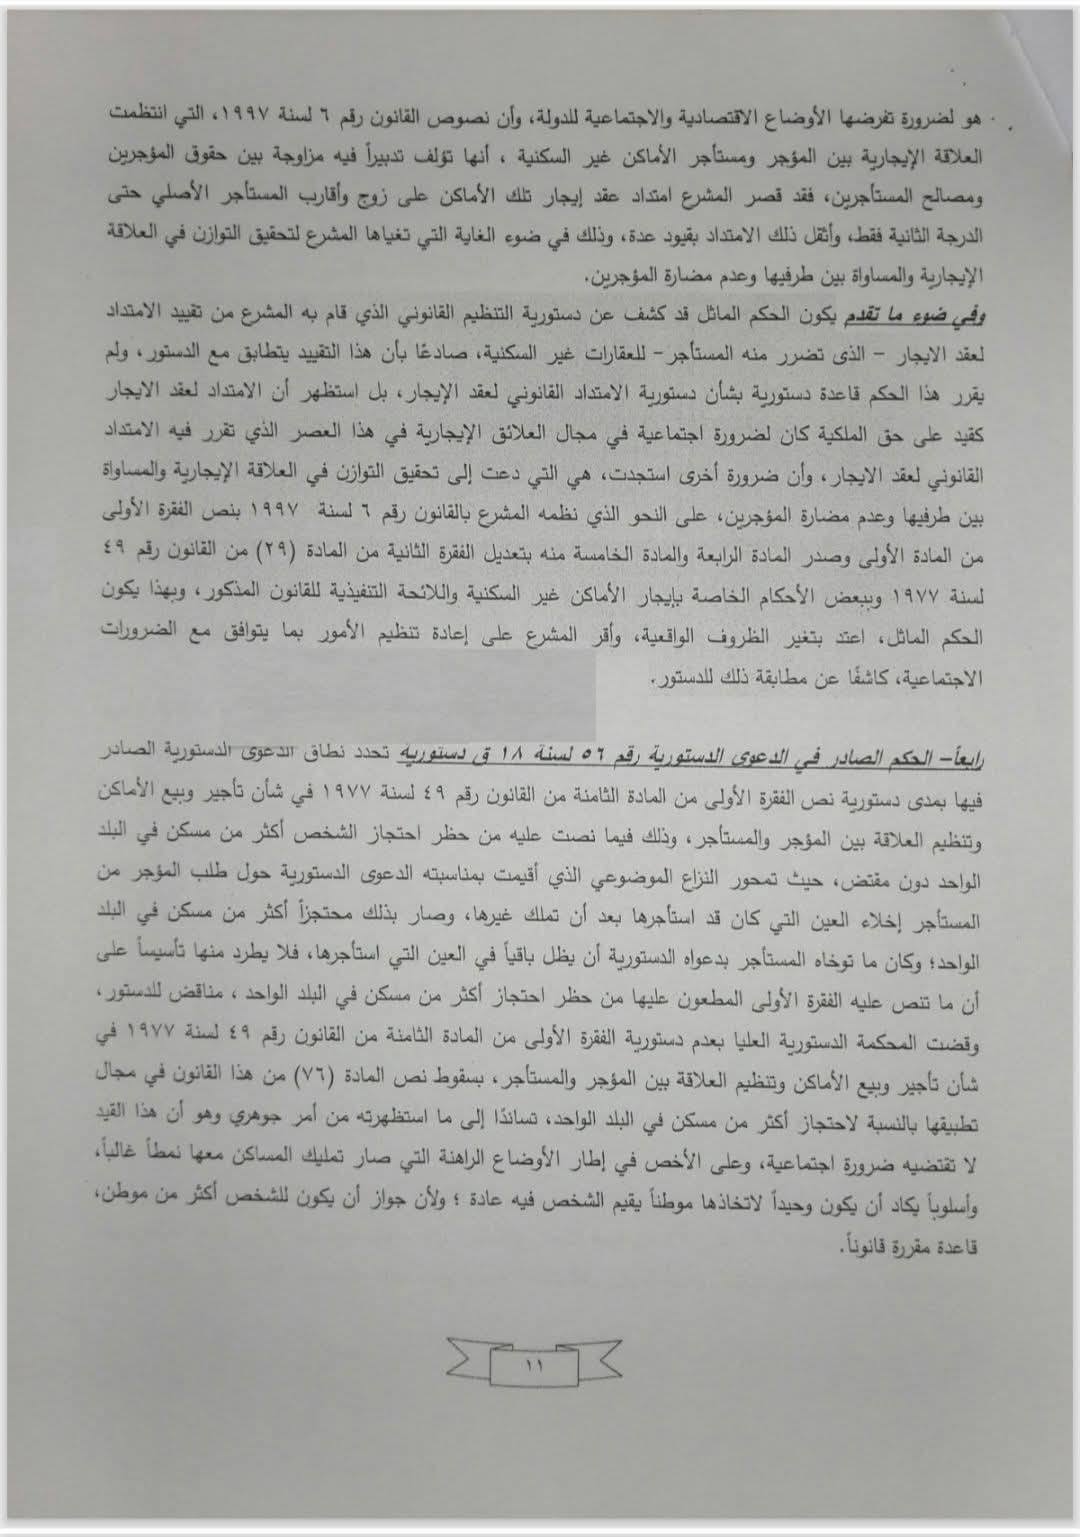 هو لضرورة تفرضها الأوضاع الاقتصادية والاجتماعية للدولة، وأن نصوص القانون رقم ٦ لسنة ١٩٩٧، التي انتظمت
العلاقة الإيجارية بين المؤجر ومستأجر الأماكن غير السكنية ، أنها تؤلف تدبيراً فيه مزاوجة بين حقوق المؤجرين
ومصالح المستأجرين، فقد قصر المشرع امتداد عقد إيجار تلك الأماكن على زوج وأقارب المستأجر الأصلي حتى
الدرجة الثانية فقط، وأثقل ذلك الامتداد بقيود عدة، وذلك في ضوء الغاية التي تغياها المشرع لتحقيق التوازن في العلاقة
الإيجارية والمساواة بين طرفيها وعدم مضارة المؤجرين.
وفي ضوء ما تقدم يكون الحكم الماثل قد كشف عن دستورية التنظيم القانوني الذي قام به المشرع من تقييد الامتداد
لعقد الايجار – الذى تضرر منه المستأجر– للعقارات غير السكنية، صادعًا بأن هذا التقييد يتطابق مع الدستور، ولم
يقرر هذا الحكم قاعدة دستورية بشأن دستورية الامتداد القانوني لعقد الإيجار، بل استظهر أن الامتداد لعقد الايجار
كقيد على حق الملكية كان لضرورة اجتماعية في مجال العلائق الإيجارية في هذا العصر الذي تقرر فيه الامتداد
القانوني لعقد الايجار، وأن ضرورة أخرى استجدت، هي التي دعت إلى تحقيق التوازن في العلاقة الإيجارية والمساواة
بين طرفيها وعدم مضارة المؤجرين، على النحو الذي نظمه المشرع بالقانون رقم ٦ لسنة ١٩٩٧ بنص الفقرة الأولى
من المادة الأولى وصدر المادة الرابعة والمادة الخامسة منه بتعديل الفقرة الثانية من المادة (٢٩) من القانون رقم ٤٩
لسنة ١٩٧٧ وببعض الأحكام الخاصة بإيجار الأماكن غير السكنية واللائحة التنفيذية للقانون المذكور، وبهذا يكون
الحكم الماثل، اعتد بتغير الظروف الواقعية، وأقر المشرع على إعادة تنظيم الأمور بما يتوافق مع الضرورات
الاجتماعية، كاشفًا عن مطابقة ذلك للدستور.
رابعاً– الحكم الصادر في الدعوى الدستورية رقم ٥٦ لسنة ١٨ ق دستورية تحدد نطاق الدعوى الدستورية الصادر
فيها بمدى دستورية نص الفقرة الأولى من المادة الثامنة من القانون رقم ٤٩ لسنة ١٩٧٧ في شأن تأجير وبيع الأماكن
وتنظيم العلاقة بين المؤجر والمستأجر، وذلك فيما نصت عليه من حظر احتجاز الشخص أكثر من مسكن في البلد
الواحد دون مقتض، حيث تمحور النزاع الموضوعي الذي أقيمت بمناسبته الدعوى الدستورية حول طلب المؤجر من
المستأجر إخلاء العين التي كان قد استأجرها بعد أن تملك غيرها، وصار بذلك محتجزاً أكثر من مسكن في البلد
الواحد؛ وكان ما توخاه المستأجر بدعواه الدستورية أن يظل باقياً في العين التي استأجرها، فلا يطرد منها تأسيساً على
أن ما تنص عليه الفقرة الأولى المطعون عليها من حظر احتجاز أكثر من مسكن في البلد الواحد ، مناقض للدستور،
وقضت المحكمة الدستورية العليا بعدم دستورية الفقرة الأولى من المادة الثامنة من القانون رقم ٤٩ لسنة ١٩٧٧ في
شأن تأجير وبيع الأماكن وتنظيم العلاقة بين المؤجر والمستأجر، بسقوط نص المادة (٧٦) من هذا القانون في مجال
تطبيقها بالنسبة لاحتجاز أكثر من مسكن في البلد الواحد، تساندًا إلى ما استظهرته من أمر جوهري وهو أن هذا القيد
لا تقتضيه ضرورة اجتماعية، وعلى الأخص في إطار الأوضاع الراهنة التي صار تمليك المساكن معها نمطاً غالباً،
وأسلوباً يكاد أن يكون وحيداً لاتخاذها موطناً يقيم الشخص فيه عادة ؛ ولأن جواز أن يكون للشخص أكثر من موطن،
قاعدة مقررة قانوناً.
١١